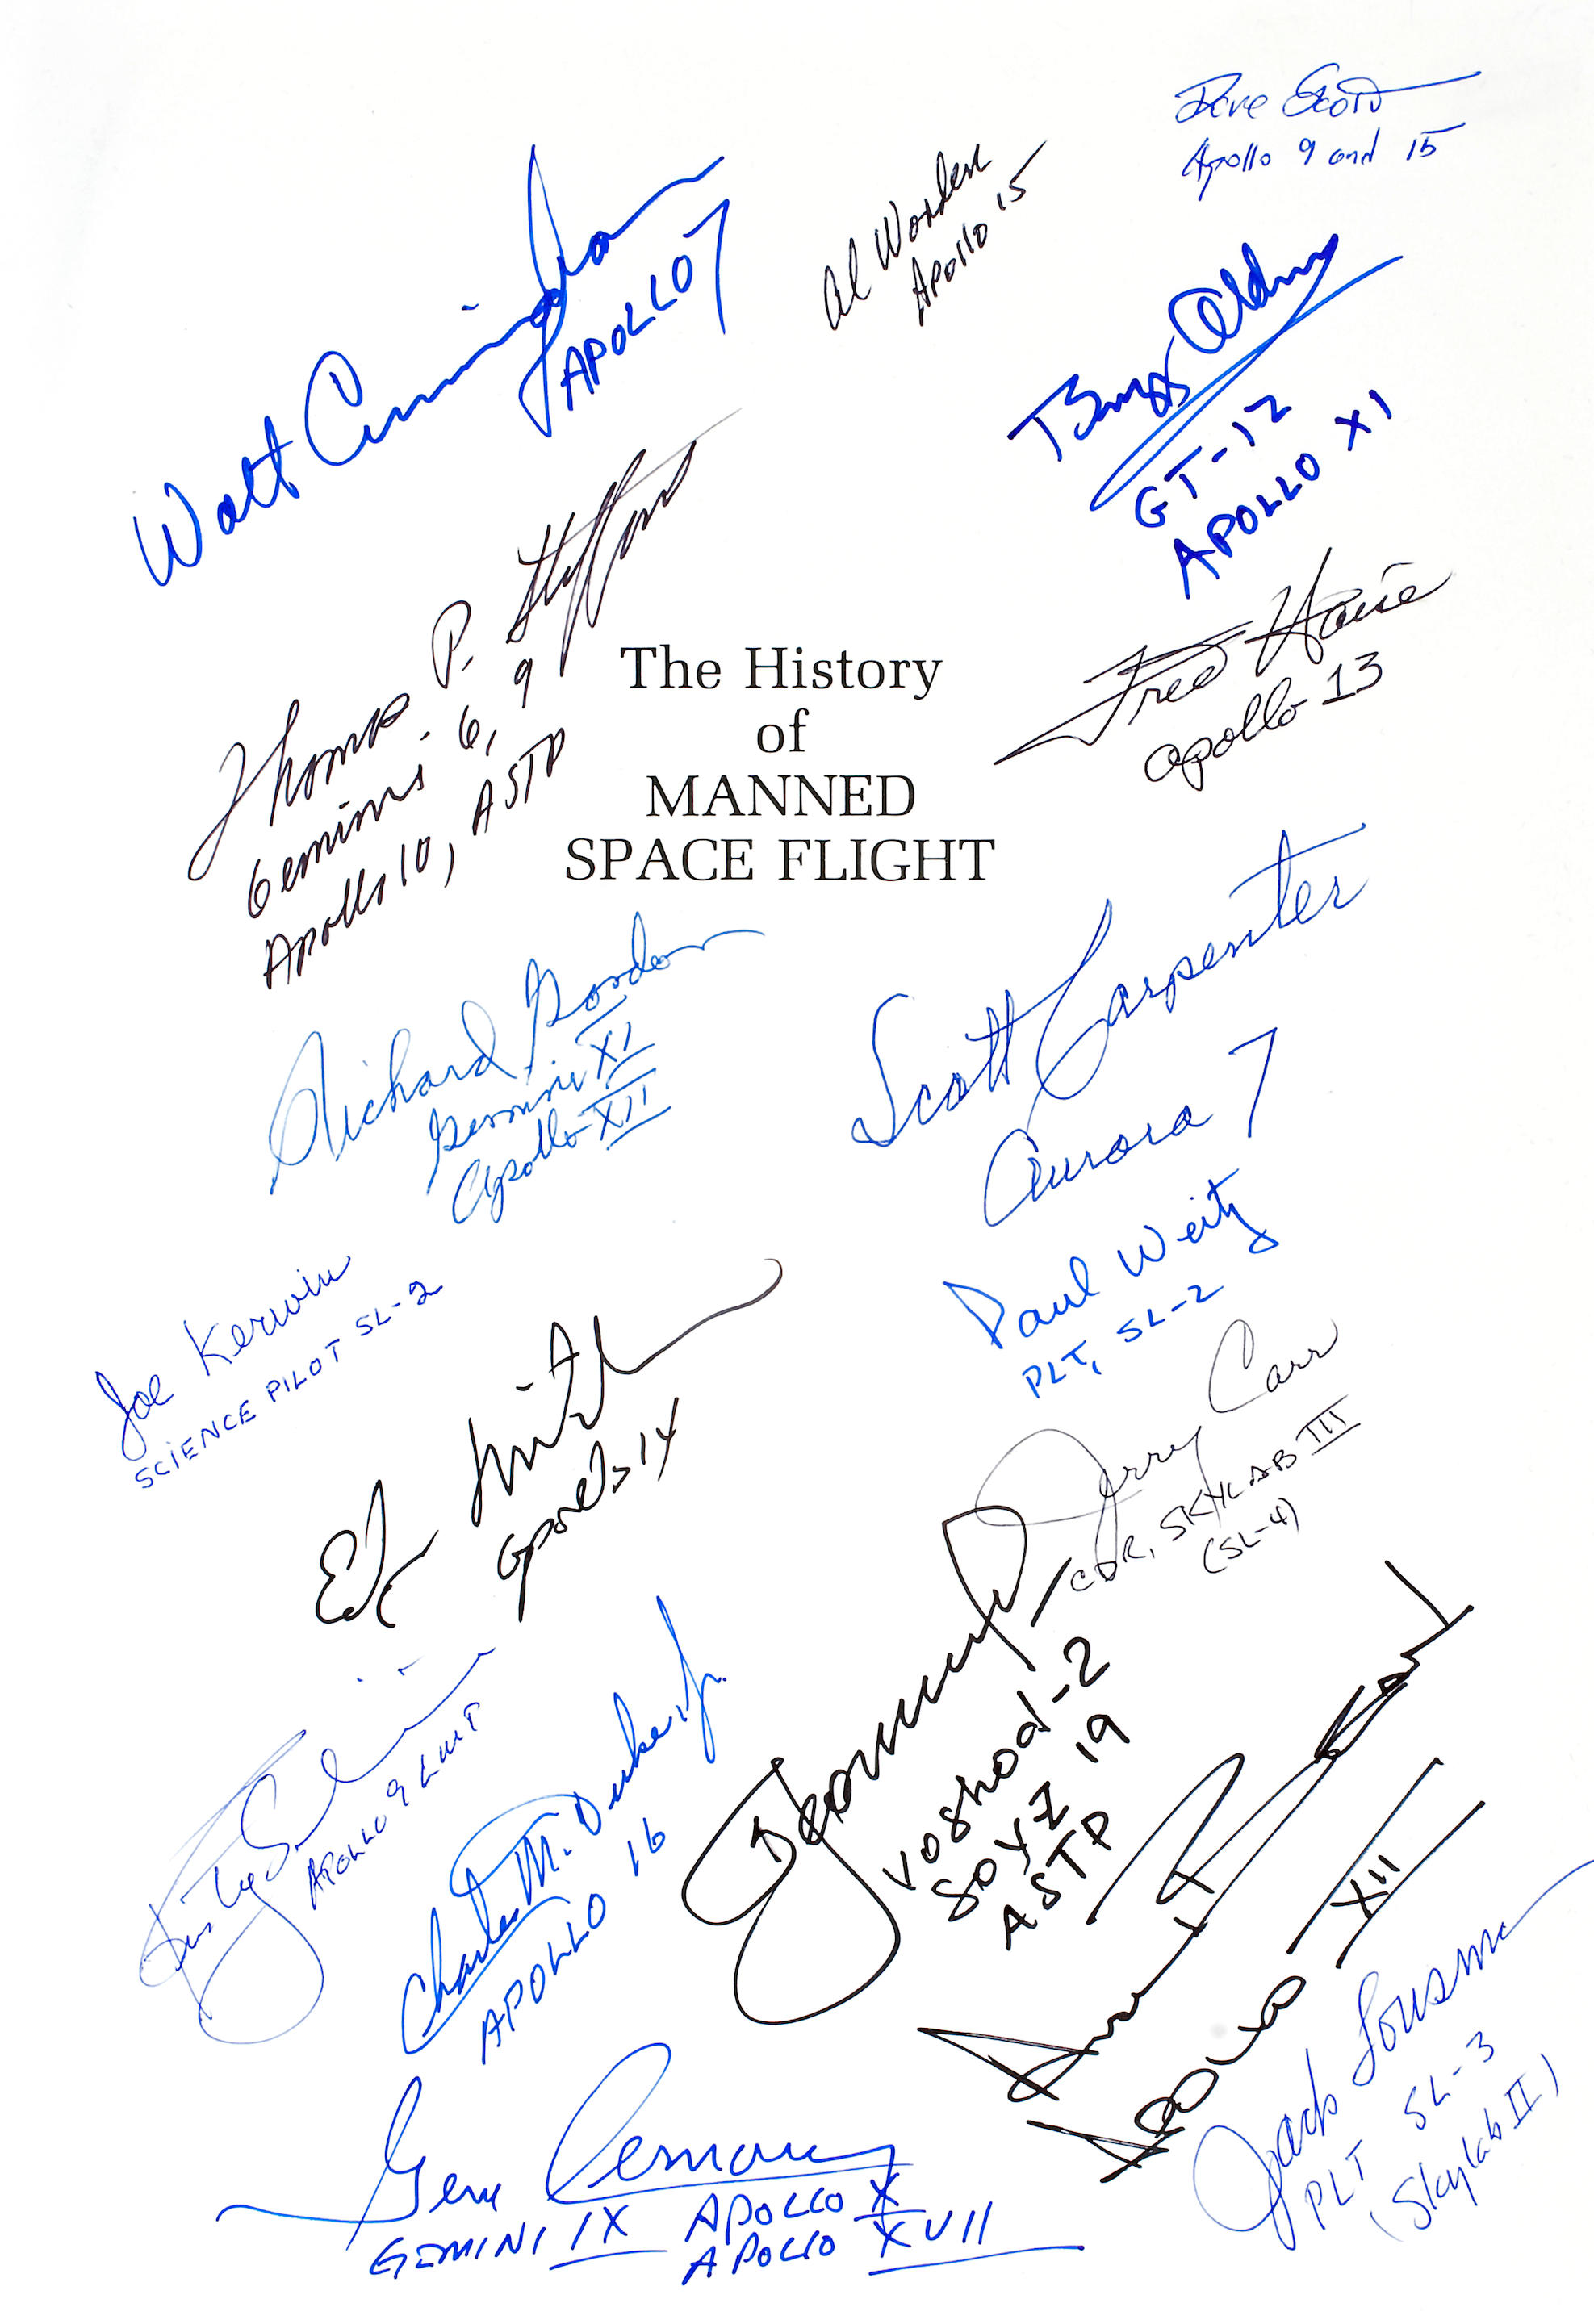 Dave Scott
Apollo 9 and 15
Al Worden
Apollo 15
Walt Cunningham
APOLLO 7
Buzz Aldrin
GT-12
APOLLO XI
Thomas P. Stafford
Gemini's 6, 9
Apollo 10, ASTP
Fred Haise
Apollo 13
The History
of
MANNED
SPACE FLIGHT
Richard Gordon
Gemini XI
Apollo XII
Scott Carpenter
Aurora 7
Joe Kerwin
SCIENCE PILOT SL-2
Paul Weitz
PLT, SL-2
Ed Mitchell
Apollo 14
Jerry Carr
CDR, SKYLAB III
(SL-4)
APOLLO 9 LMP
Charles M. Duke, Jr.
APOLLO 16
Voshod-2
SOYZ 19
ASTP
Alan Bean
APOLLO XII
Jack Lousma
PLT SL-3
(Skylab II)
Gene Cernan
GEMINI IX APOLLO X
APOLLO XVII